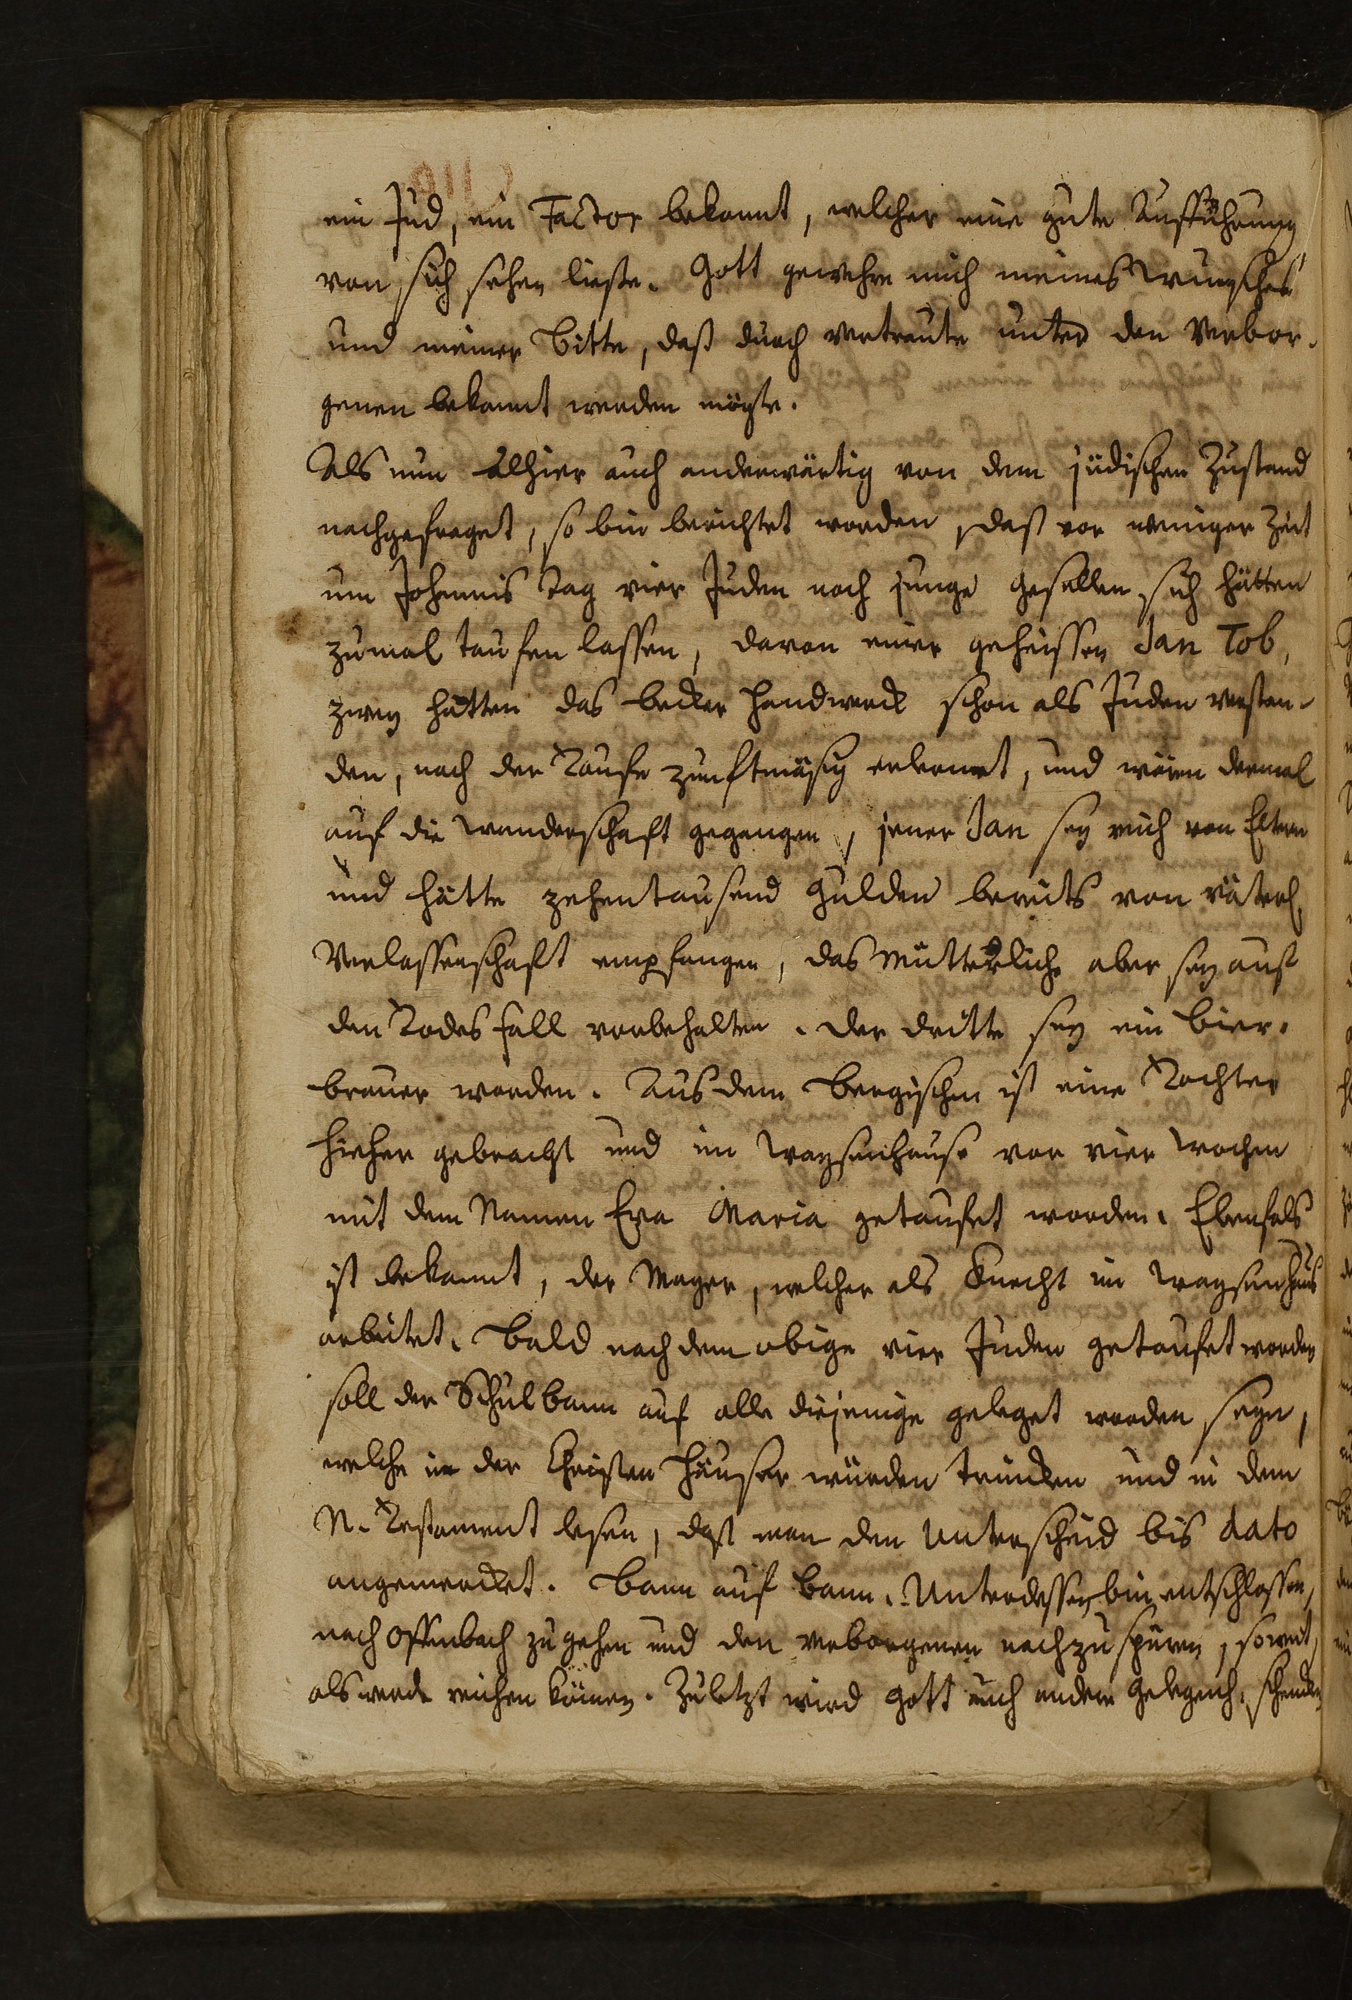 ein Jud, ein Factor bekannt, welcher eine gute Aufführung
von sich sehen ließe. Gott gewehre mich meines Wunsches
und meiner Bitte, daß durch Vertraute unter den Verbor-
genen bekannt werden mögte.
Als nun alhier auch anderwärtig von dem jüdischen Zustand
nachgefraget, so bin berichtet worden, daß vor weniger Zeit
um Johannis Tag vier Juden noch junge Gesellen sich hätten
zumal taufen lassen, davon einer geheissen Jan Tob,
zwey hätten das becker Handwerck schon als Juden verstan-
den, nach der Taufe zunftmäsig erkennt, und wären dermal
auf die Wanderschaft gegangen, jener Jan sey reich von Eltern
und hätte zehentausend Gulden bereits von väterl.
Verlassenschaft empfangen, das Mütterliche aber sey auf
den Todes fall vorbehalten. Der dritte sey ein Bier-
brauer worden. Aus dem Bergischen ist eine Tochter
hieher gebracht und im Waysenhause vor vier Wochen
mit dem Namen Eva Maria getaufet worden. Ebenfals
ist bekannt, der Mayer, welcher als Knecht im Waysenhaus
arbeitet. Bald nach dem obige vier Juden getaufet worden
soll der Schulbann auf alle diejenige geleget worden seyn,
welche in der Christen Häuser würden trincken und in dem
N. Testament lesen, daß man den Unterscheid bis dato
angemercket. Bann auf Bann. Unterdessen bin entschlossen,
nach Offenbach zu gehen und den verborgenen nachzuspüren, soweit
als werde reichen können. Zuletzt wird Gott auch andere Gelegenh. schencken